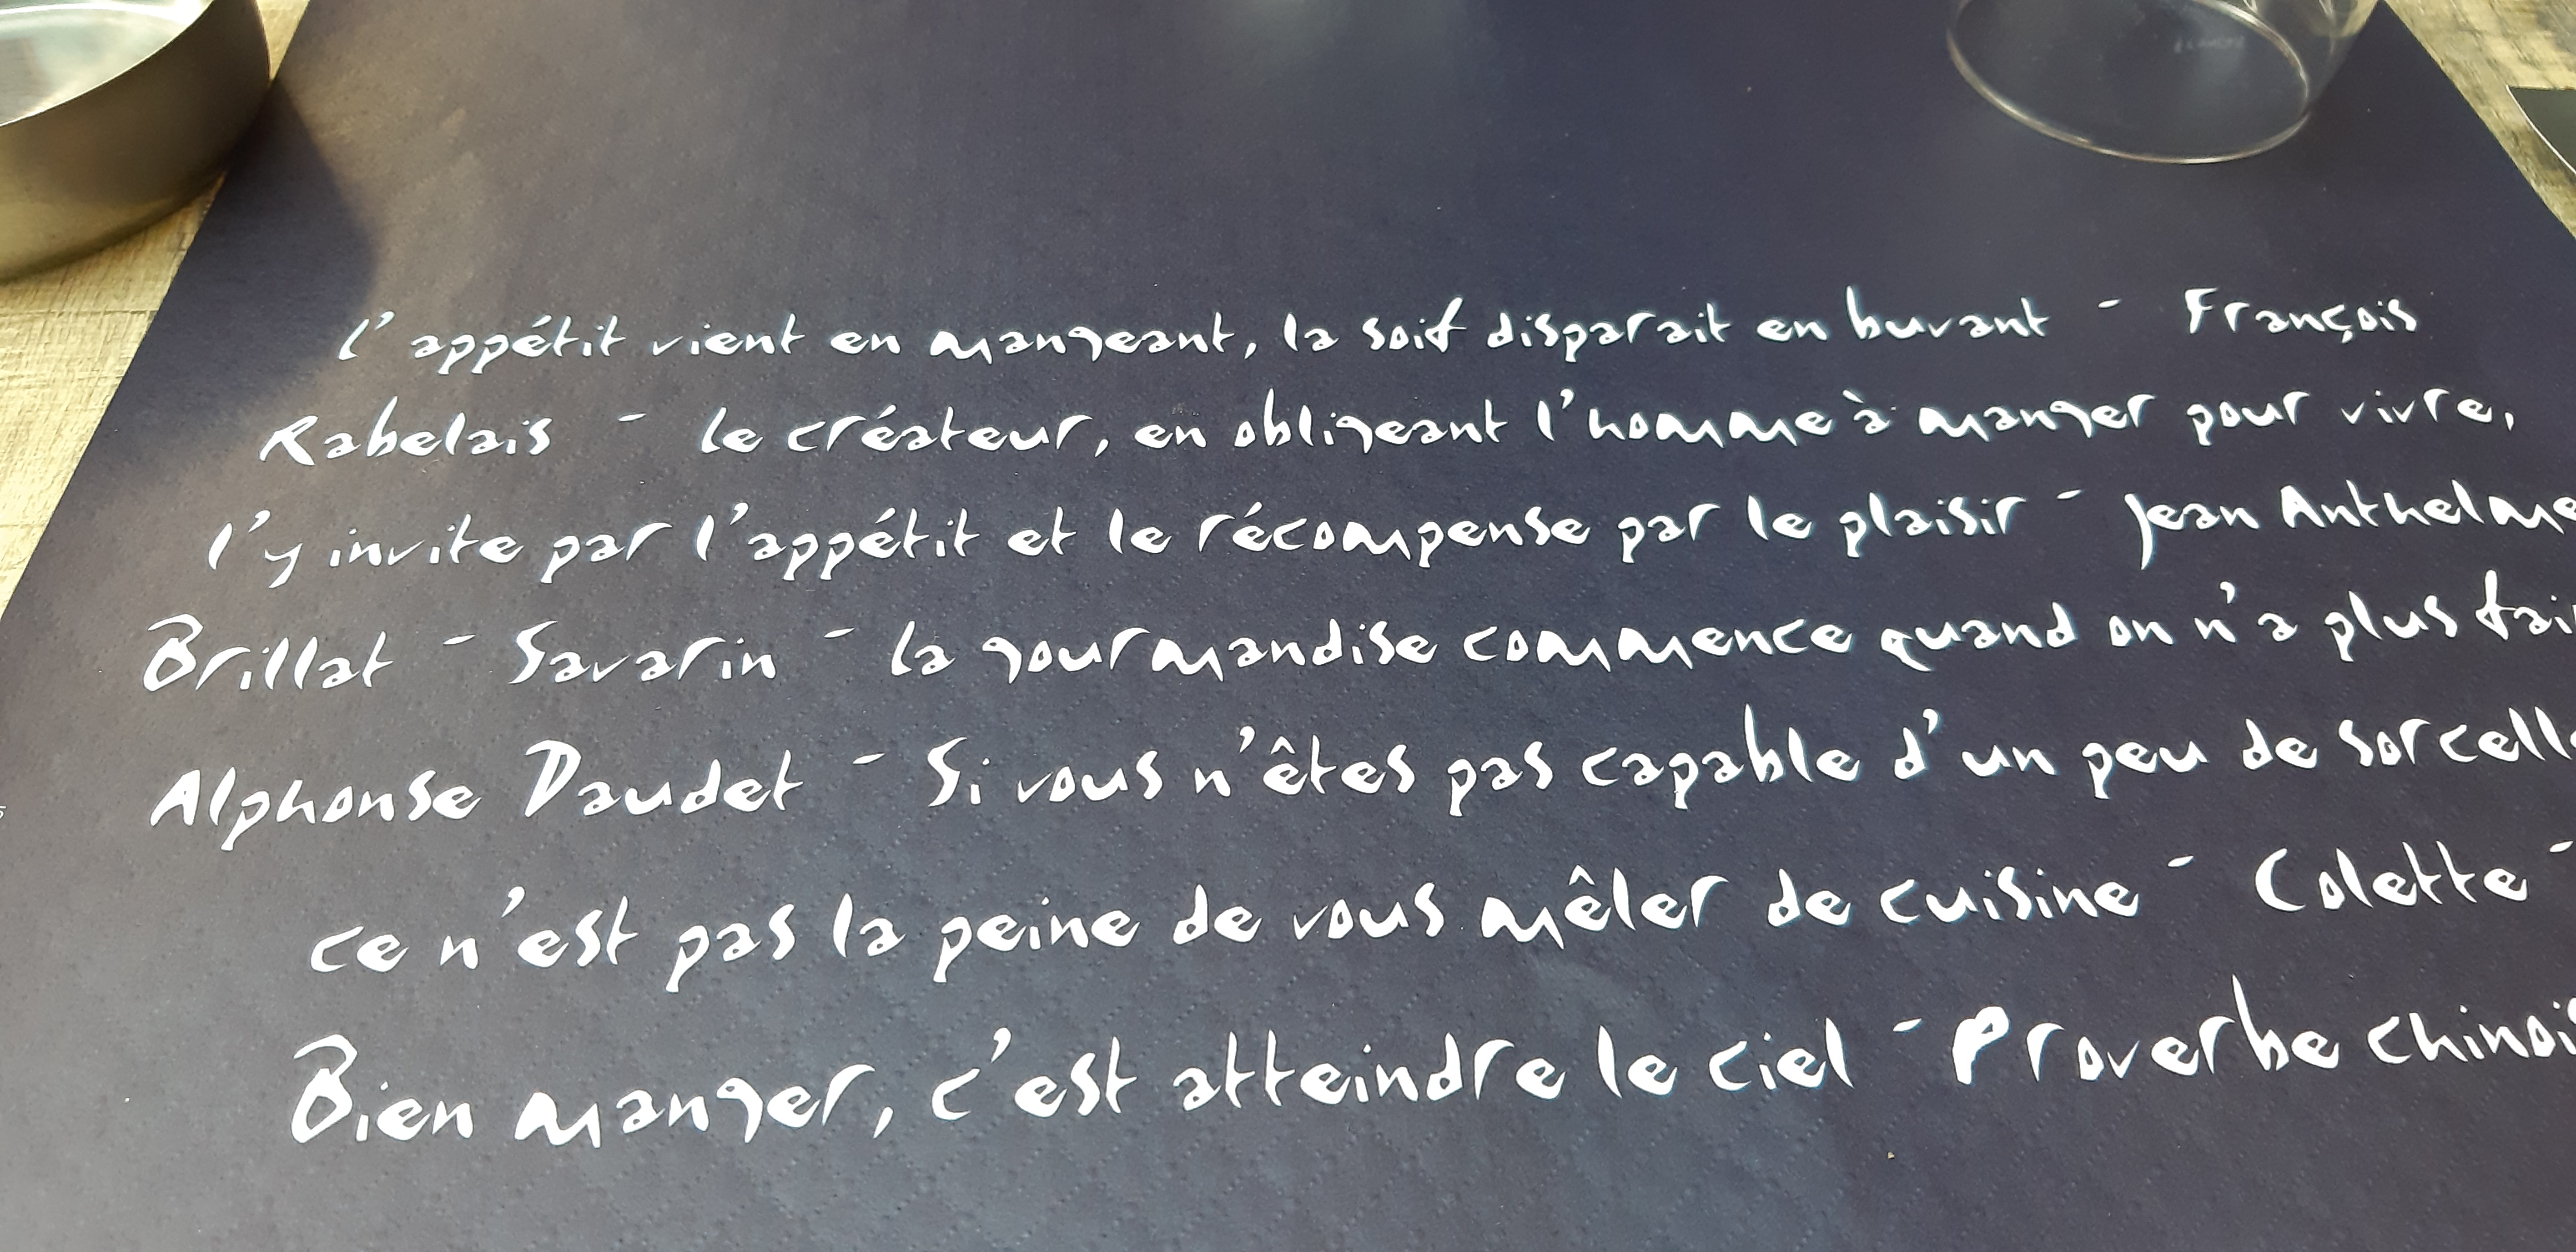 l'appétit vient en mangeant, la soif disparait en buvant - François
Rabelais - le créateur, en obligeant l'homme à manger pour vivre,
l'y invite par l'appétit et le récompense par le plaisir - Jean Anthelme
Brillat - Savarin - la gourmandise commence quand on n'a plus
Alphonse Daudet - Si vous n'êtes pas capable d'un peu de
ce n'est pas la peine de vous mêler de cuisine - Colette -
Bien manger, c'est atteindre le ciel - Proverbe chinois